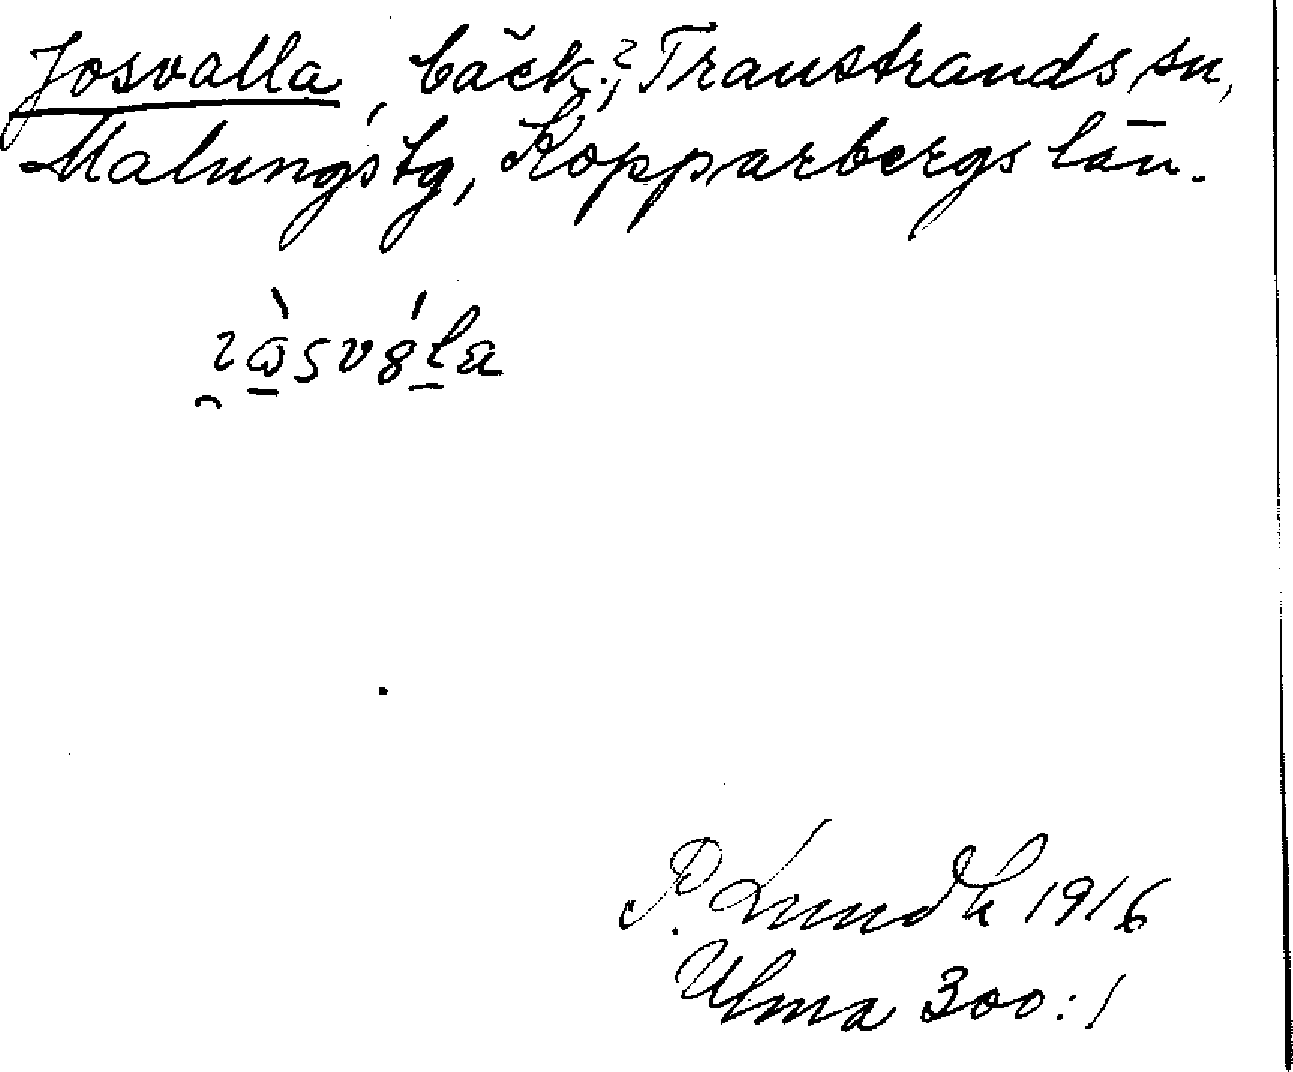 Josvalla, bäck?, Transtrands sn,
Malungs tg, Kopparbergs län.
P. Lundh 1916
Ulma 300:1